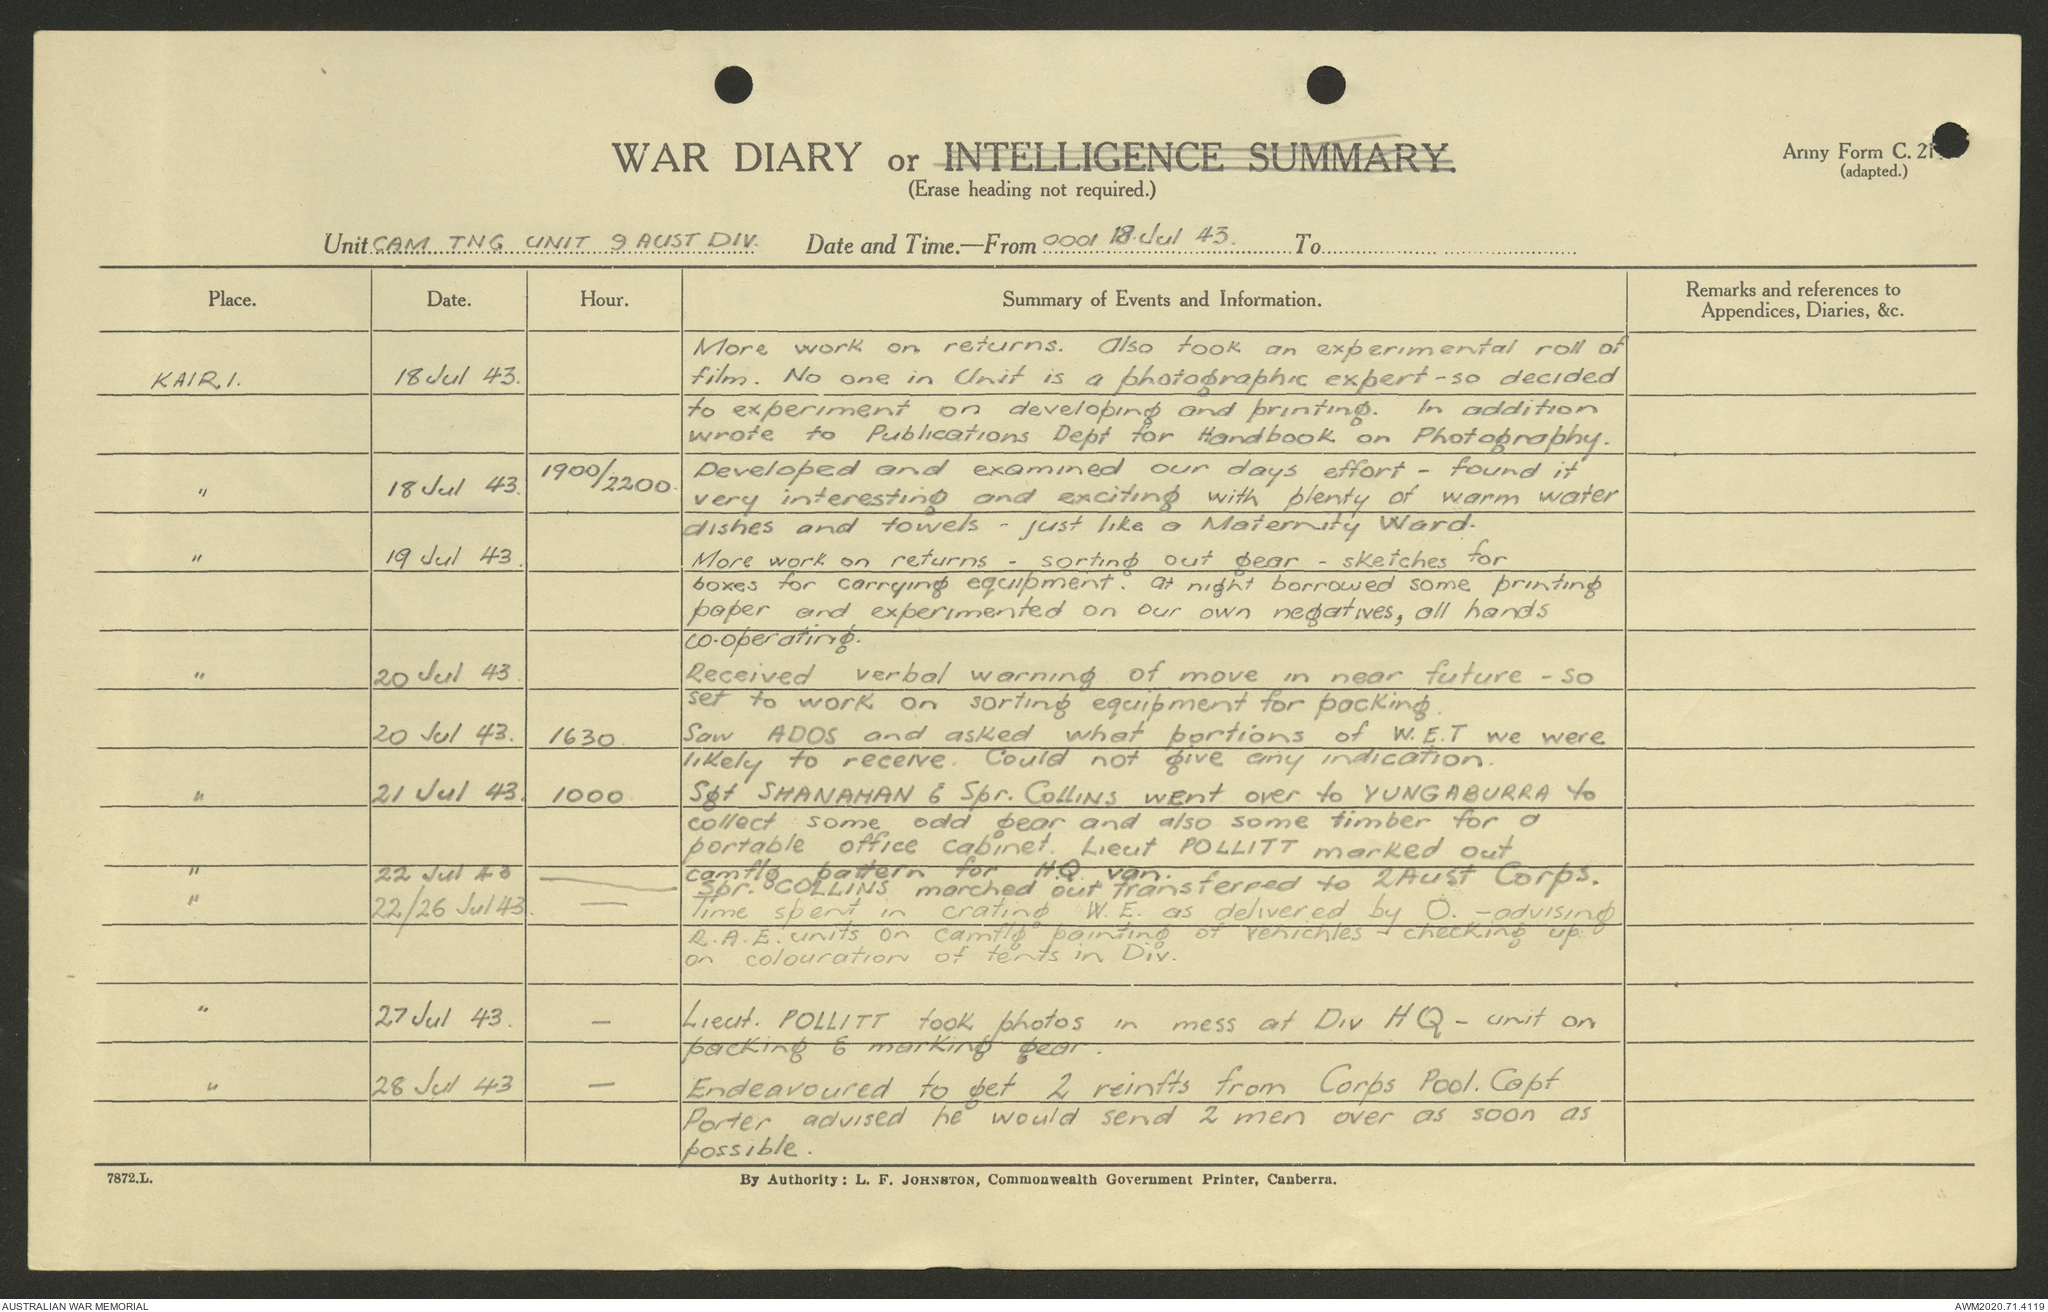 WAR DIARY or INTELLIGENCE SUMMARY.
(Erase heading not required.)
Army Form C. 21
(adapted.)
Unit CAM TNG UNIT 9 AUST DIV. Date and Time.—From 0001 18 Jul 43. To
Place. Date. Hour. Summary of Events and Information. Remarks and references to
Appendices, Diaries, &c.
More work on returns. Also took an experimental roll of
KAIRI. 18 Jul 43. film. No one in Unit is a photographic expert - so decided
to experiment on developing and printing. In addition
wrote to Publications Dept for Handbook on Photography.
" 18 Jul 43. 1900/2200. Developed and examined our days effort - found it
very interesting and exciting with plenty of warm water
dishes and towels - just like a Maternity Ward.
" 19 Jul 43. More work on returns - sorting out gear - sketches for
boxes for carrying equipment. At night borrowed some printing
paper and experimented on our own negatives, all hands
co-operating.
" 20 Jul 43. Received verbal warning of move in near future - so
set to work on sorting equipment for packing.
20 Jul 43. 1630. Saw ADOS and asked what portions of W.E.T we were
likely to receive. Could not give any indication.
" 21 Jul 43. 1000 Sgt SHANAHAN & Spr. COLLINS went over to YUNGABURRA to
collect some odd gear and also some timber for a
portable office cabinet. Lieut POLLITT marked out
camflg pattern for H.Q. van.
" 22 Jul 43 — Spr. COLLINS marched out transferred to 2 Aust Corps.
" 22/26 Jul 43. — Time spent in crating W.E. as delivered by O. - advising
R.A.E. units on camflg painting of vehichles - checking up
on colouration of tents in Div.
" 27 Jul 43. — Lieut. POLLITT took photos in mess at Div HQ - unit on
packing & marking gear.
" 28 Jul 43 — Endeavoured to get 2 reinfts from Corps Pool. Capt
Porter advised he would send 2 men over as soon as
possible.
7872.L. By Authority: L. F. JOHNSTON, Commonwealth Government Printer, Canberra.
AUSTRALIAN WAR MEMORIAL AWM2020.71.4119